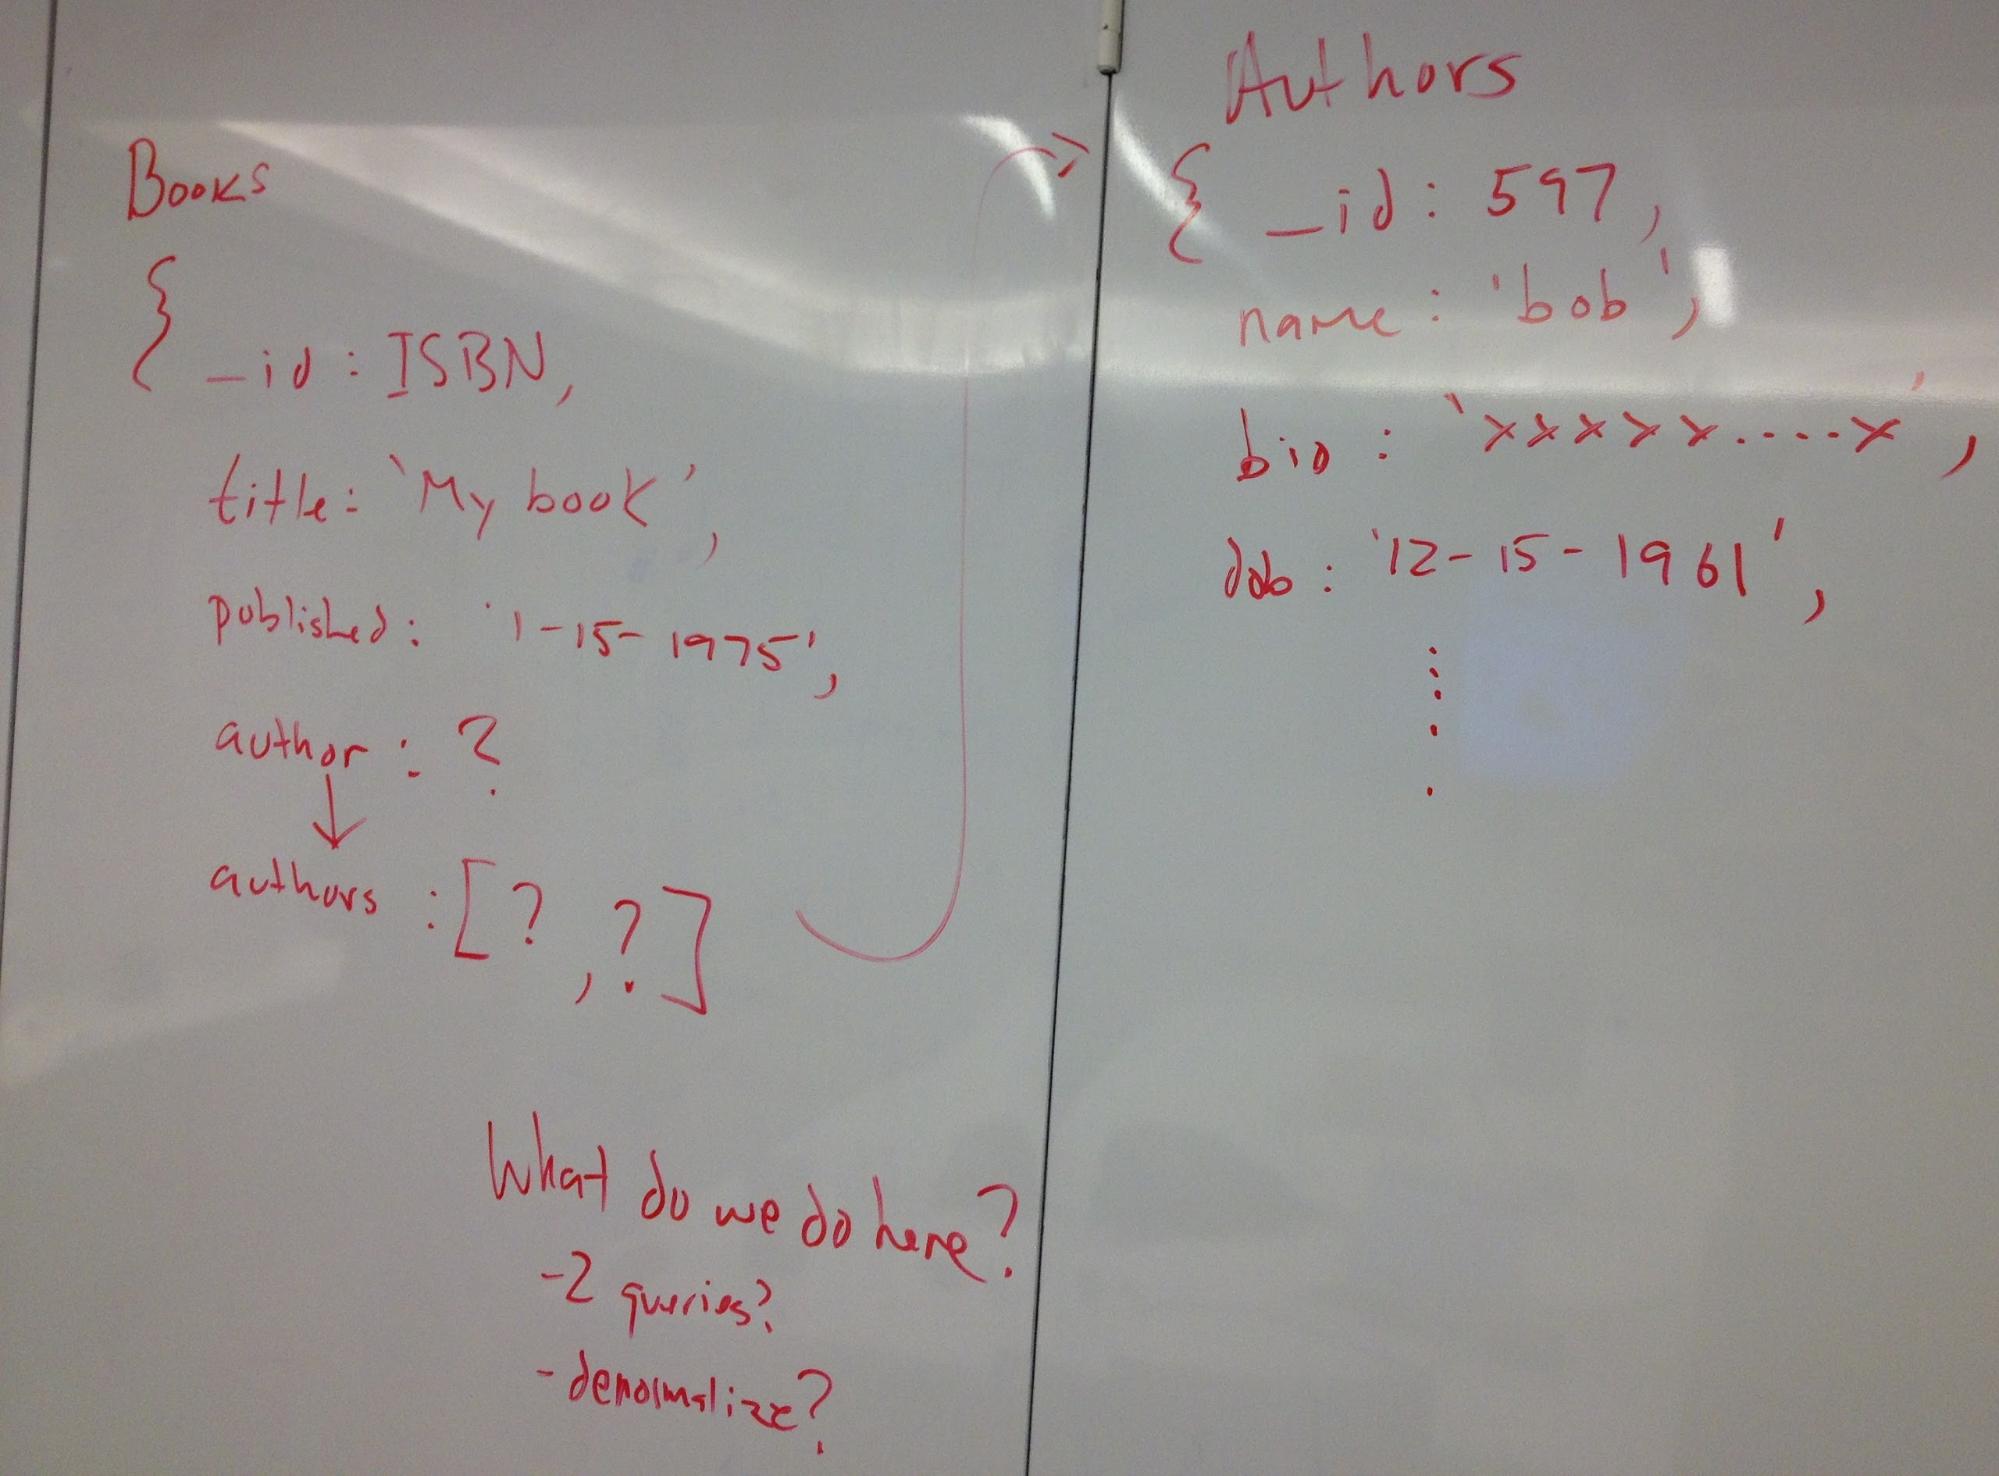 Books
{
_id : ISBN,
title: 'My book',
published: '1-15-1975',
author : ?
authors : [?, ?]
What do we do here?
- 2 queries?
- denormalize?
Authors
{ _id : 597,
name : 'bob',
bio : 'xxxxx....x',
dob : '12-15-1961',